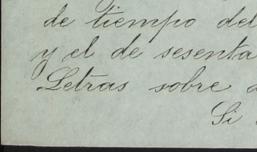 de tiempo del
y el de sesenta
Letras sobre
Si